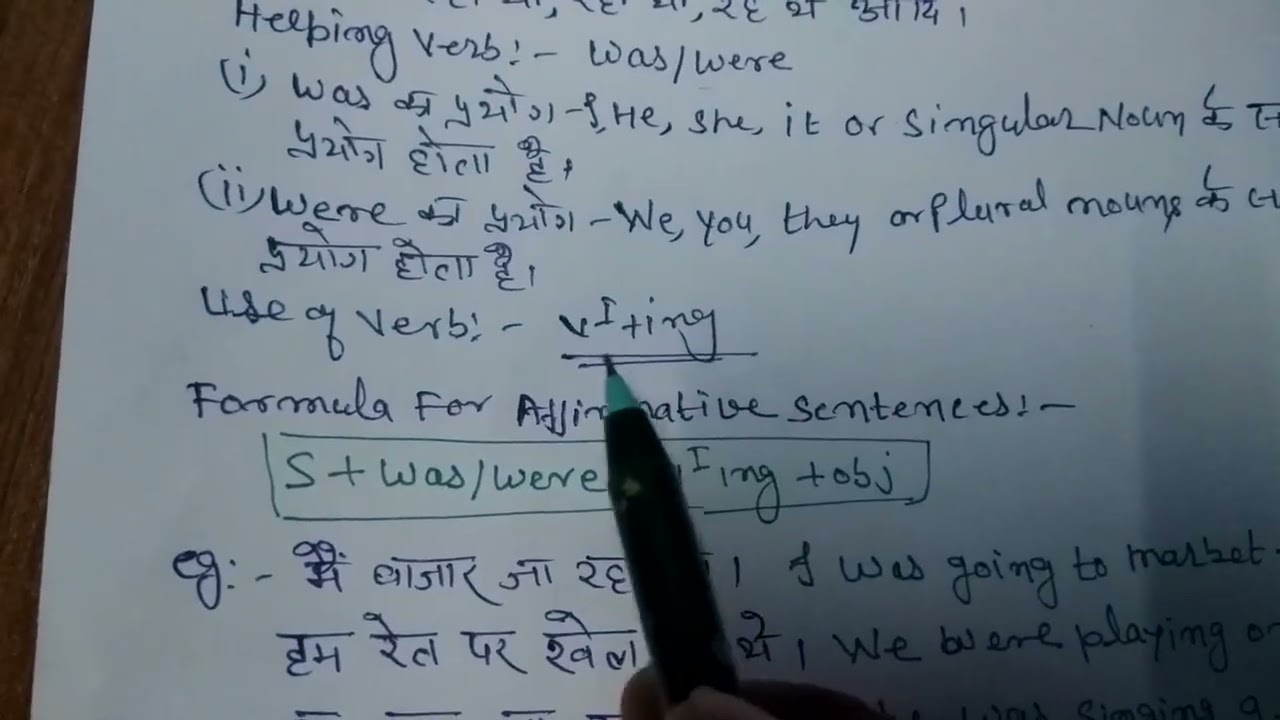 रहा था, रहे थे आदि।
Helping Verb:- was/were
(i) was का प्रयोग - I, He, she, it or singular Noun के
प्रयोग होता है।
(ii) were का प्रयोग - We, you, they or plural nouns के
प्रयोग होता है।
Use of Verb:- vI+ing
Formula For Affirmative sentences:-
S + was/were I ing + obj
eg:- मैं बाजार जा रहा । I was going to market
हम रेत पर खेल थे। We were playing
was singing